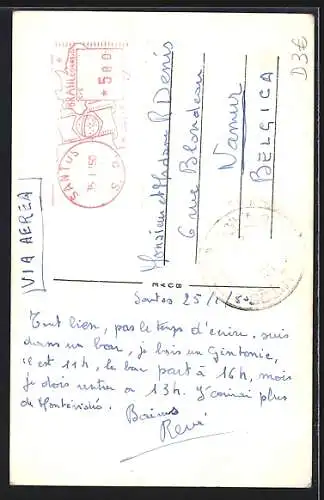 D3€
BRASIL CORREIO
*500
SANTOS
25 I 150
S. P.
VIA AEREA
Monsieur et Madame R Denis
6 rue Blondeau
Namur
BELGICA
Santos 25/1/50
Tout bien, pas le temps d'écrire. suis
dans un bar, je bois un Gintonic,
il est 11h, le bar part à 16h, mais
je dois rentrer à 13h. J'écrirai plus
de Montévidéo. Baisers
René